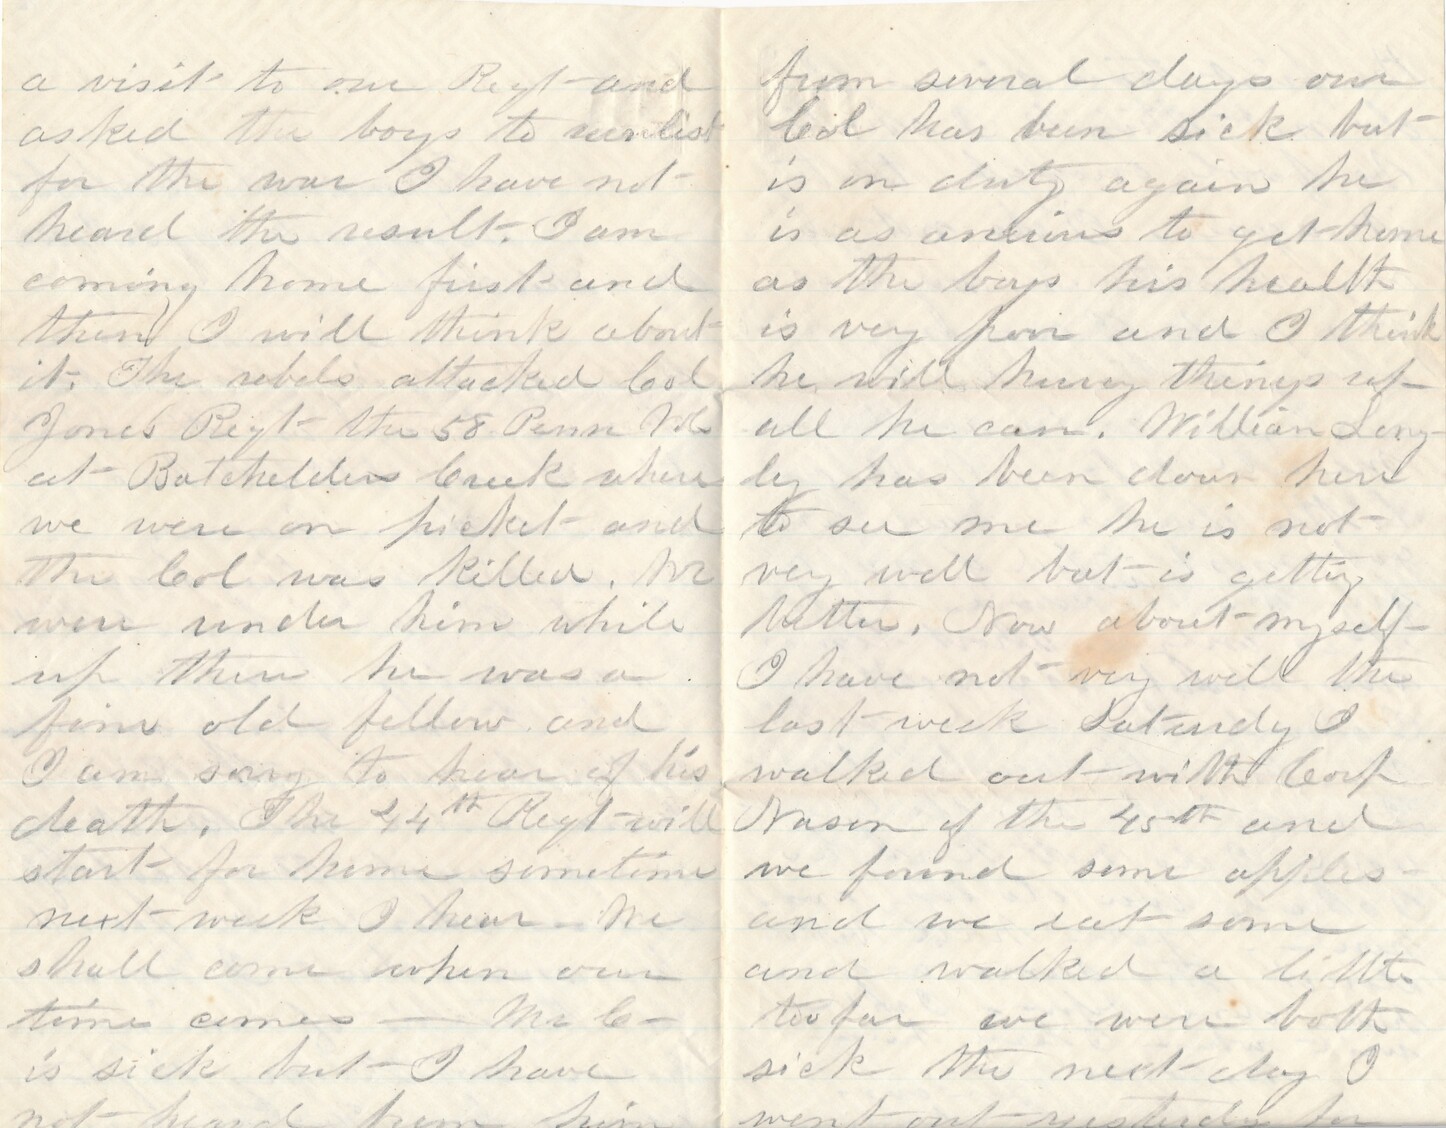 a visit to our Regt and
asked the boys to reenlist
for the war I have not
heard the result. I am
coming home first and
then I will think about
it. The rebels attacked Col
Jones Regt the 58 Penn Vol
at Batchelders Creek where
we were on picket and
the Col was killed. We
were under him while
up there he was a
fine old fellow and
I am sorry to hear of his
death. The 44th Regt will
start for home sometime
next week I hear We
shall come when our
time comes — Mr C—
is sick but I have
not heard from him
from several days our
Col has been sick but
is on duty again he
is as anxious to get home
as the boys his health
is very poor and I think
he will hurry things up
all he can. William Long-
ley has been down here
to see me he is not
very well but is getting
better. Now about myself
I have not very well the
last week Saturdy I
walked out with Corp
Nason of the 45th and
we found some apples
and we eat some
and walked a little
too far we were both
sick the next day I
went out yesterday for